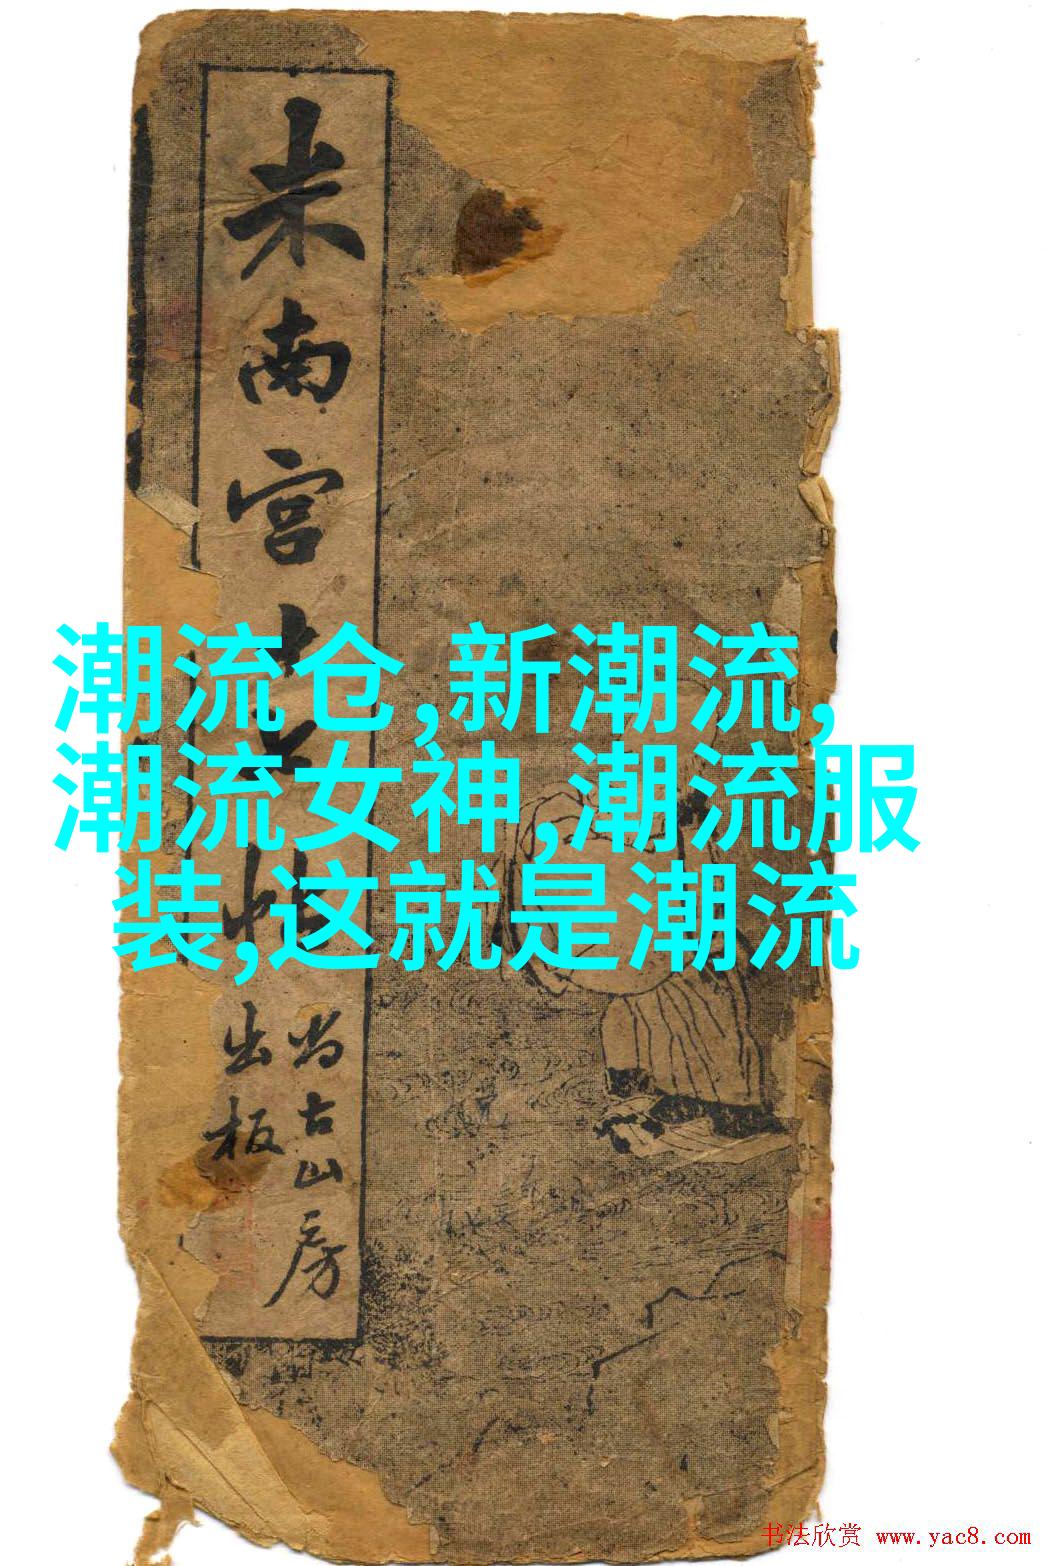 米南宫
潮流仓,新潮流,
潮流女神,潮流服
装,这就是潮流
尚古山房
出板
书法欣赏 www.yac8.com